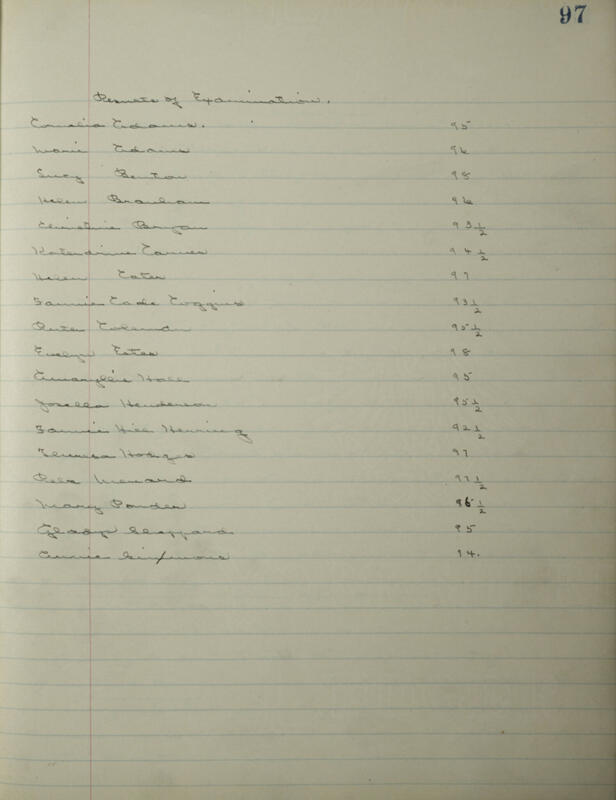 97
Results of Examination.
Cornelia Adams. 95
Marie Adams 96
Lucy Benton 98
Helen Branham 96
Christine Bryan 93½
Katendrine Carnes 94½
Helen Cates 97
Fannie Cade Coggins 93½
Ruter 95½
Evelyn Estes 98
Amaryllis Hall 95
Josella Henderson 95½
Fannie Hill Herring 92½
Theresa Hodges 97
Rela Menard 97½
Mary Ponder 96½
Gladys Sheppard 95
Annie Simmons 94.